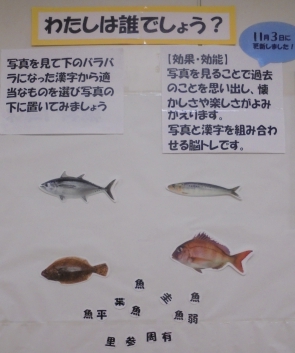 わたしは誰でしょう？
11月3日に
更新しました！
写真を見て下のバラバ
ラになった漢字から適
当なものを選び写真の
下に置いてみましょう
【効果・効能】
写真を見ることで過去
のことを思い出し、懐
かしさや楽しさがよみ
かえります。
写真と漢字を組み合わ
せる脳トレです。
魚
葉 魚
魚平 魚 魚弱
里 参 周 有